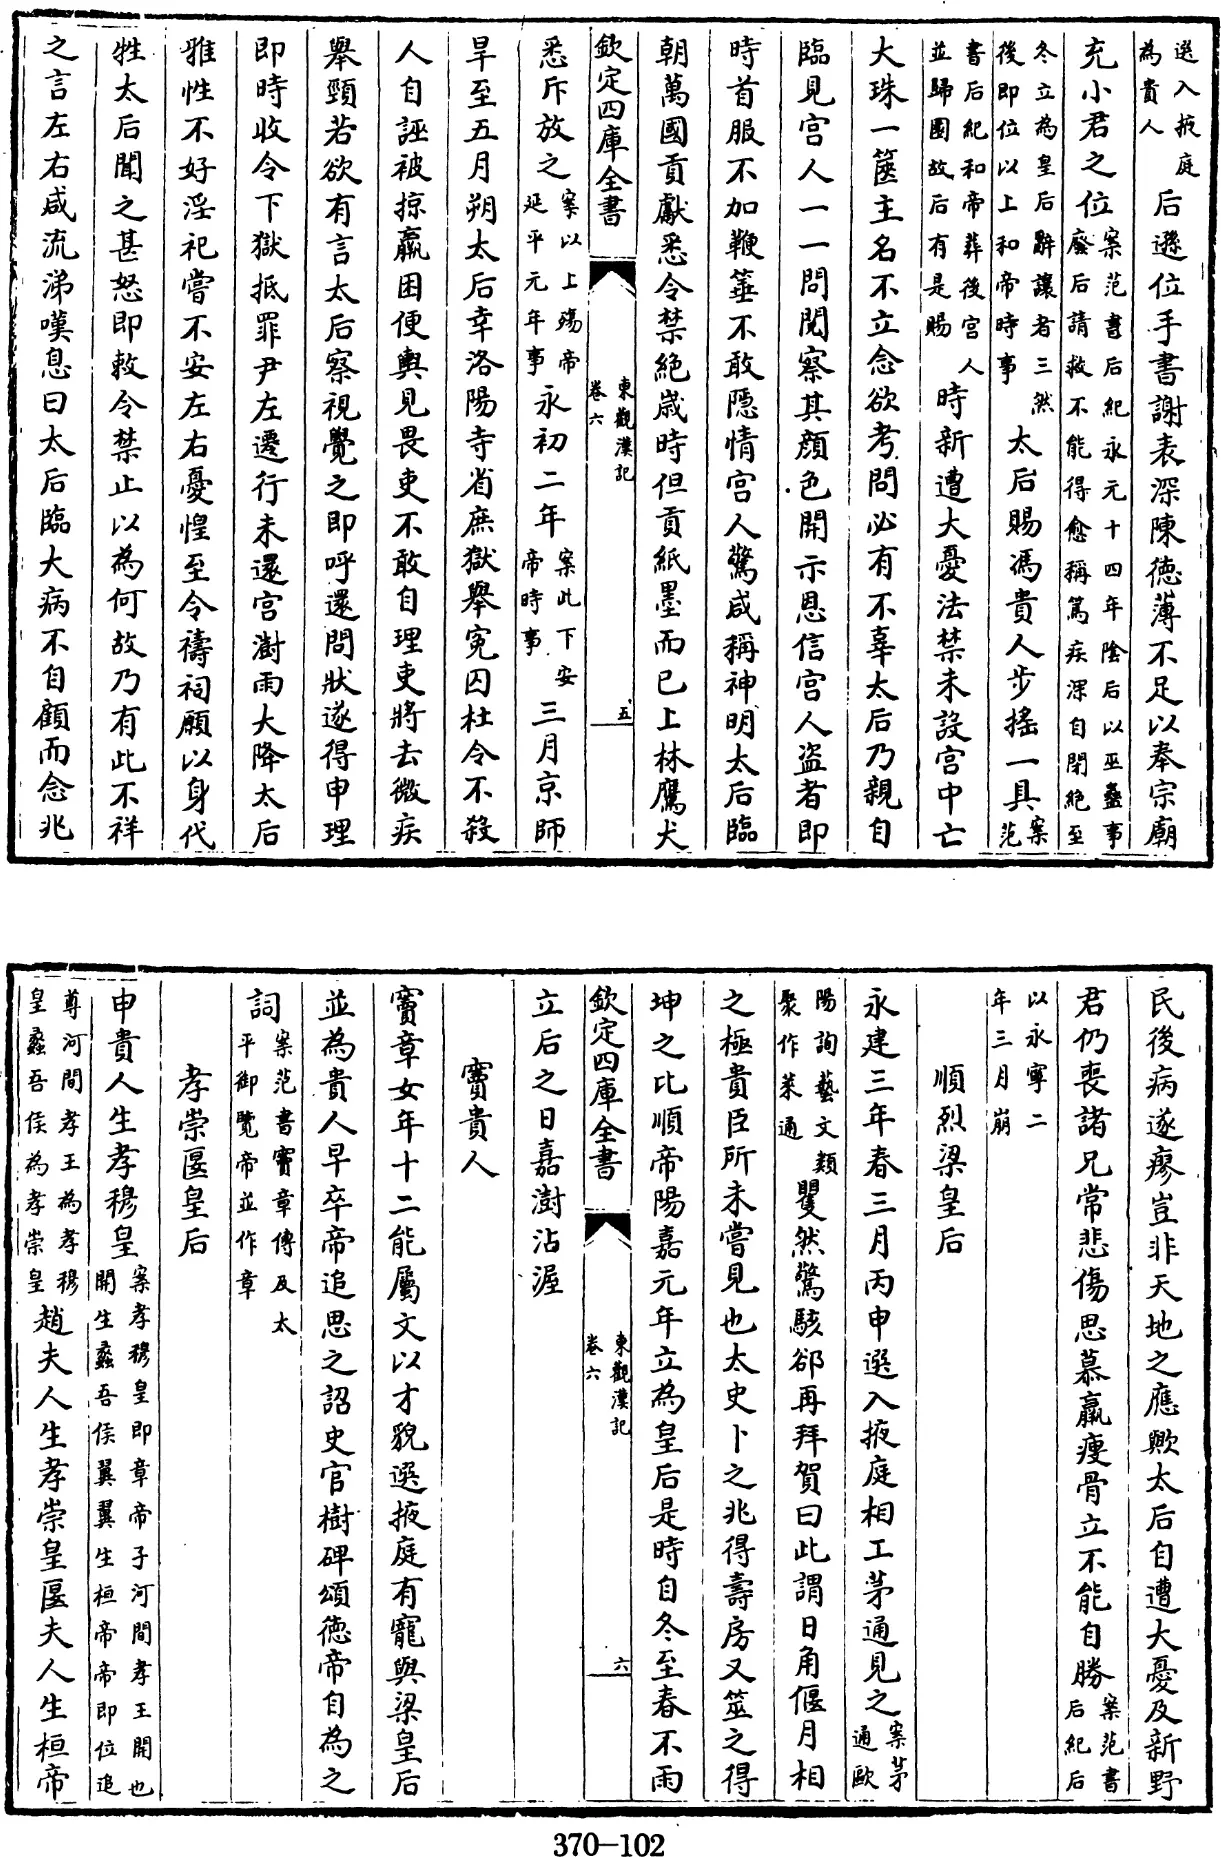 選入掖庭為貴人后遜位手書謝表深陳德薄不足以奉宗廟
充小君之位案范書后紀永元十四年陰后以巫蠱事廢后請救不能得愈稱篤疾深自閉絕至
冬立為皇后辭讓者三然後即位以上和帝時事太后賜馮貴人步搖一具案范
書后紀和帝葬後宮人並歸園故后有是賜時新遭大憂法禁未設宮中亡
大珠一篋主名不立念欲考問必有不辜太后乃親自
臨見宮人一一問閱察其顏色開示恩信宮人盜者即
時首服不加鞭箠不敢隱情宮人驚咸稱神明太后臨
朝萬國貢獻悉令禁絕歲時但貢紙墨而已上林鷹犬
欽定四庫全書 東觀漢記 卷六 五
悉斥放之案以上殤帝延平元年事永初二年案此下安帝時事三月京師
旱至五月朔太后幸洛陽寺省庶獄舉冤囚杜令不殺
人自誣被掠羸困便輿見畏吏不敢自理吏將去微疾
舉頸若欲有言太后察視覺之即呼還問狀遂得申理
即時收令下獄抵罪尹左遷行未還宮澍雨大降太后
雅性不好淫祀嘗不安左右憂惶至令禱祠願以身代
牲太后聞之甚怒即敕令禁止以為何故乃有此不祥
之言左右咸流涕嘆息曰太后臨大病不自顧而念兆
民後病遂瘳豈非天地之應歟太后自遭大憂及新野
君仍喪諸兄常悲傷思慕羸瘦骨立不能自勝案范書后紀后
以永寧二年三月崩
順烈梁皇后
永建三年春三月丙申選入掖庭相工茅通見之案茅通歐
陽詢藝文類聚作萊通矍然驚駭郤再拜賀曰此謂日角偃月相
之極貴臣所未嘗見也太史卜之兆得壽房又筮之得
坤之比順帝陽嘉元年立為皇后是時自冬至春不雨
欽定四庫全書 東觀漢記 卷六 六
立后之日嘉澍沾渥
竇貴人
竇章女年十二能屬文以才貌選掖庭有寵與梁皇后
並為貴人早卒帝追思之詔史官樹碑頌德帝自為之
詞案范書竇章傳及太平御覽帝並作章
孝崇匽皇后
申貴人生孝穆皇案孝穆皇即章帝子河間孝王開也開生蠡吾侯翼翼生桓帝帝即位追
尊河間孝王為孝穆皇蠡吾侯為孝崇皇趙夫人生孝崇皇匽夫人生桓帝
370—102